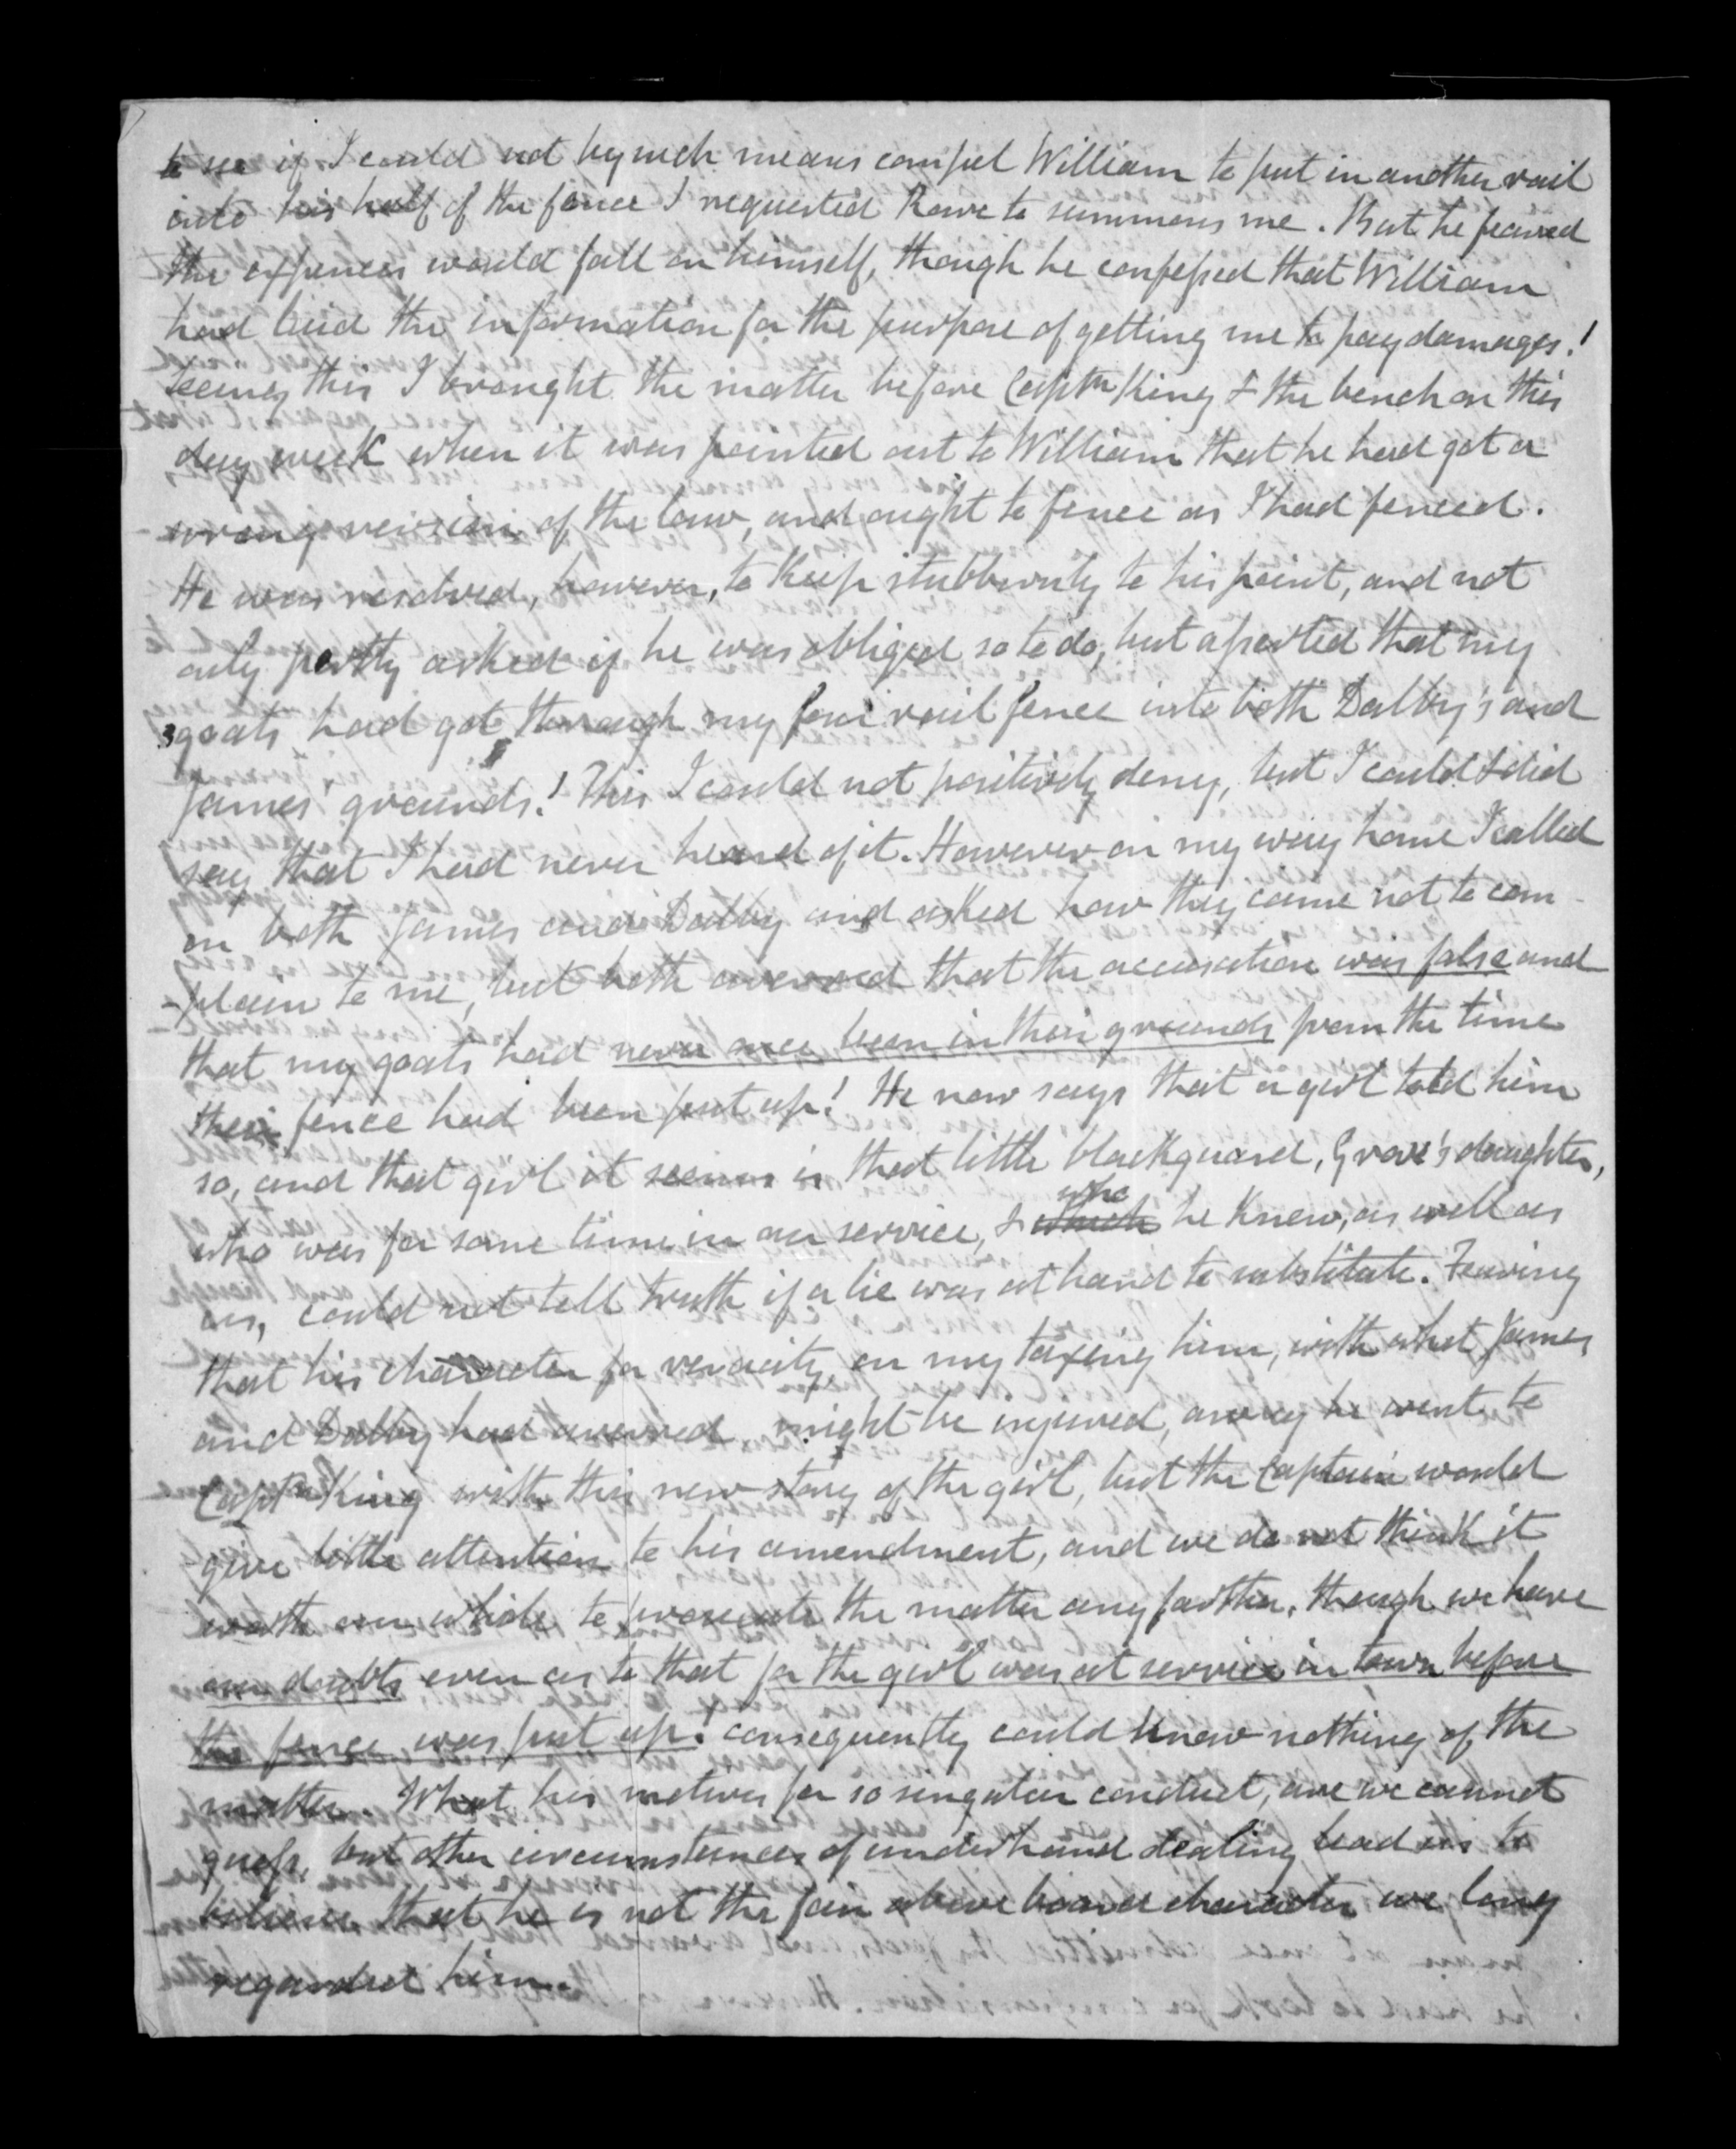 to see if I could not by such means compel William to put in another rail
into his half of the fence I requested Rowe to summons me. But he feared
the expences would fall on himself, though he confessed that William
had laid the information for the purpose of getting me to pay damages!
Seeing this I brought the matter before Captn King & the bench on this
day week when it was pointed out to William that he had got a
wrong version of the law, and ought to fence as I had fenced.
He was resolved, however, to keep stubbornly to his point, and not
only pertly asked if he was obliged so to do, but asserted that my
goats had got through my four rail fence into both Dalby's and
James' grounds! This I could not positively deny, but I could & did
say that I had never heard of it. However on my way home I called
on both James and Dalby and asked how they came not to com-
-plain to me, but both averred that the accusation was false and
that my goats had never once been in their grounds from the time
their fence had been put up! He now says that a girl told him
so, and that girl it seems is that little blackguard, Grove's daughter,
who was for some time in our service, & which who he knew, as well as
us, could not tell truth if a lie was at hand to substitute. Fearing
that his character for veracity, on my taxing him, with what James
and Dalby had averred, might be injured, away he went to
Captn King with this new story of the girl, but the Captain would
give little attention to his amendment, and we do not think it
worth our while to prosecute the matter any farther, though we have
our doubts even as to that for the girl was at service in town before
the fence was put up! consequently could know nothing of the
matter. What his motives for so singular conduct, are we cannot
guess, but other circumstances of underhand dealing lead us to
believe that he is not the fair above board character we long
regarded him.